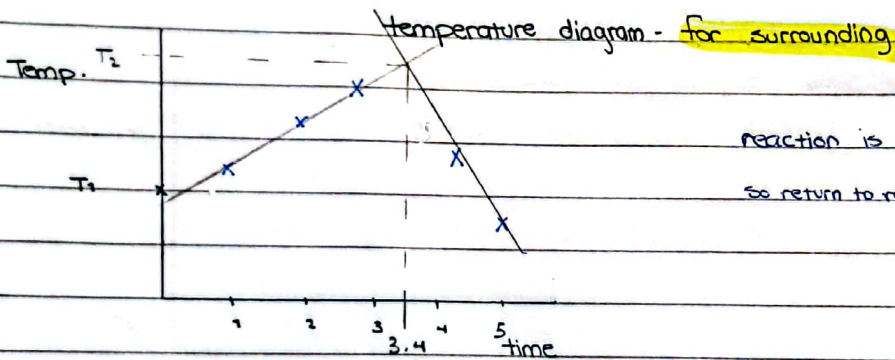 temperature diagram - for surrounding
T₂
Temp.
reaction is
T₁
so return to
1 2 3 4 5
3.4 time